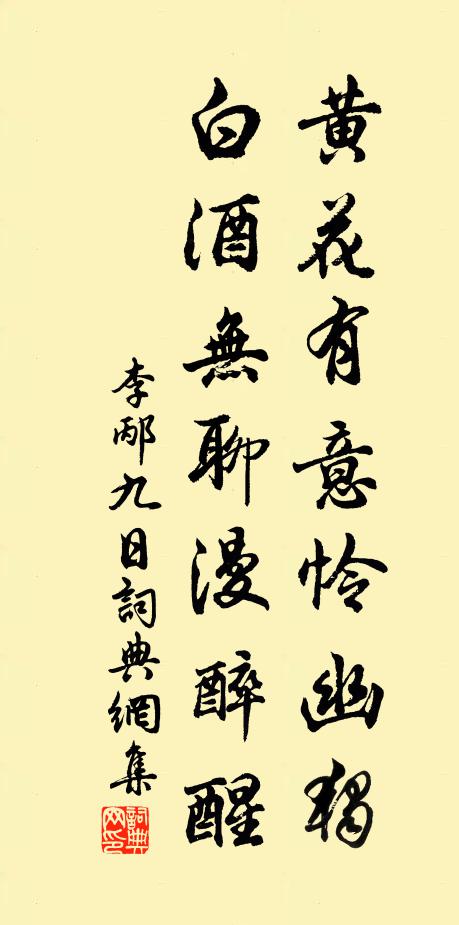 黄花有意怜幽獨
白酒無聊漫醉醒
李邴九日詞典網集
詞典网印